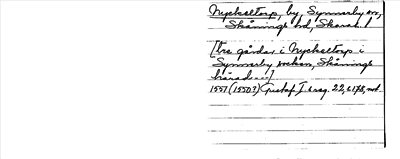 Nyckeltorp, by, Synnerby sn,
Skånings hd, Skarab. l
[tre gårdar i Nyckeltorp i
Synnerby socken, Skånings
härad...]
1551 (1550?) Gustaf I:s reg. 22, s. 178, nod.